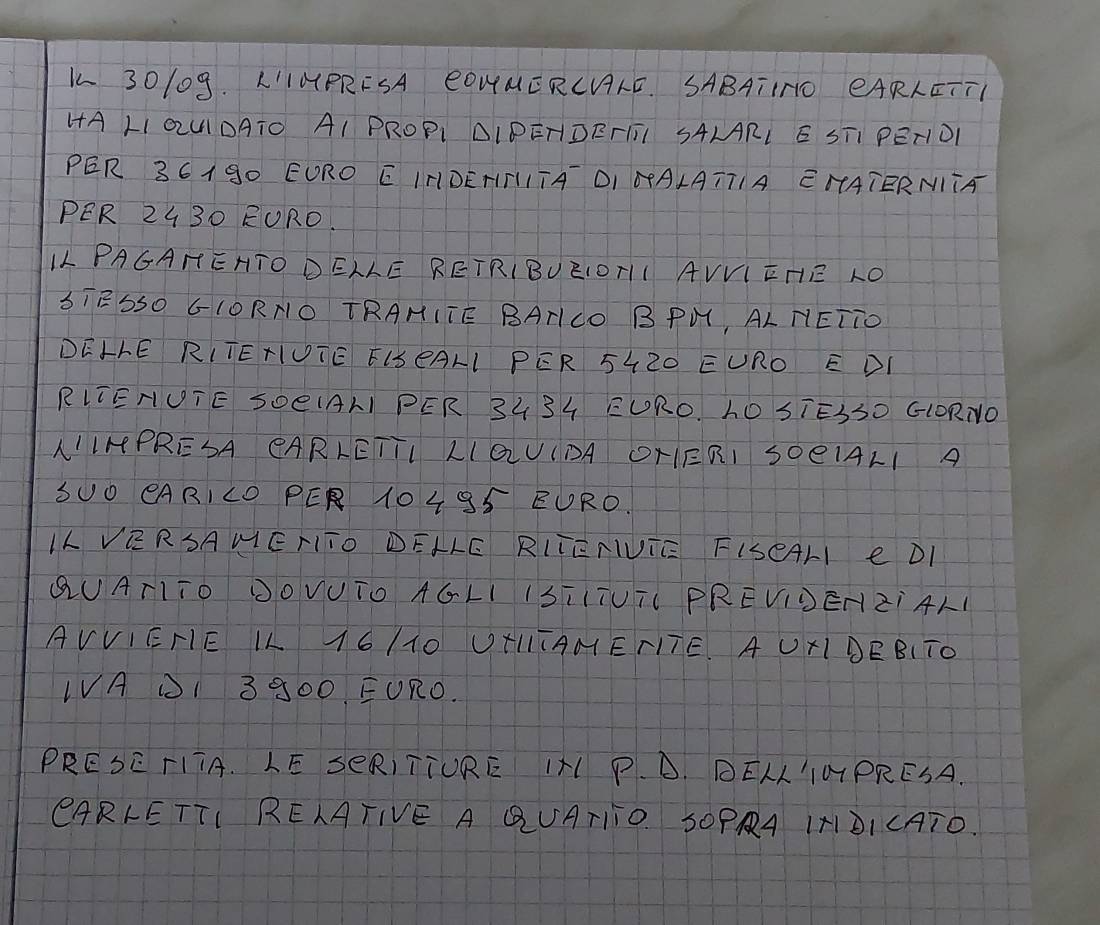 IL 30/09. L'IMPRESA COMMERCIALE. SABATINO CARLETTI
HA LIQUIDATO AI PROPI DIPENDENTI SALARI E STIPENDI
PER 36190 EURO E INDENNITA DI MALATTIA E MATERNITA
PER 2430 EURO.
IL PAGAMENTO DELLE RETRIBUZIONI AVVIENE LO
STESSO GIORNO TRAMITE BANCO BPM, AL NETTO
DELLE RITENUTE FISCALI PER 5420 EURO E DI
RITENUTE SOCIALI PER 3434 EURO. LO STESSO GIORNO
L'IMPRESA CARLETTI LIQUIDA ONERI SOCIALI A
SUO CARICO PER 10495 EURO.
IL VERSAMENTO DELLE RITENUTE FISCALI e DI
QUANTO DOVUTO AGLI ISTITUTI PREVIDENZIALI
AVVIENE IL 16/10 UNITAMENTE. A UN DEBITO
IVA DI 3900. EURO.
PRESENTA. LE SCRITTURE IN P.D. DELL'IMPRESA.
CARLETTI RELATIVE A QUANTO. SOPRA INDICATO.